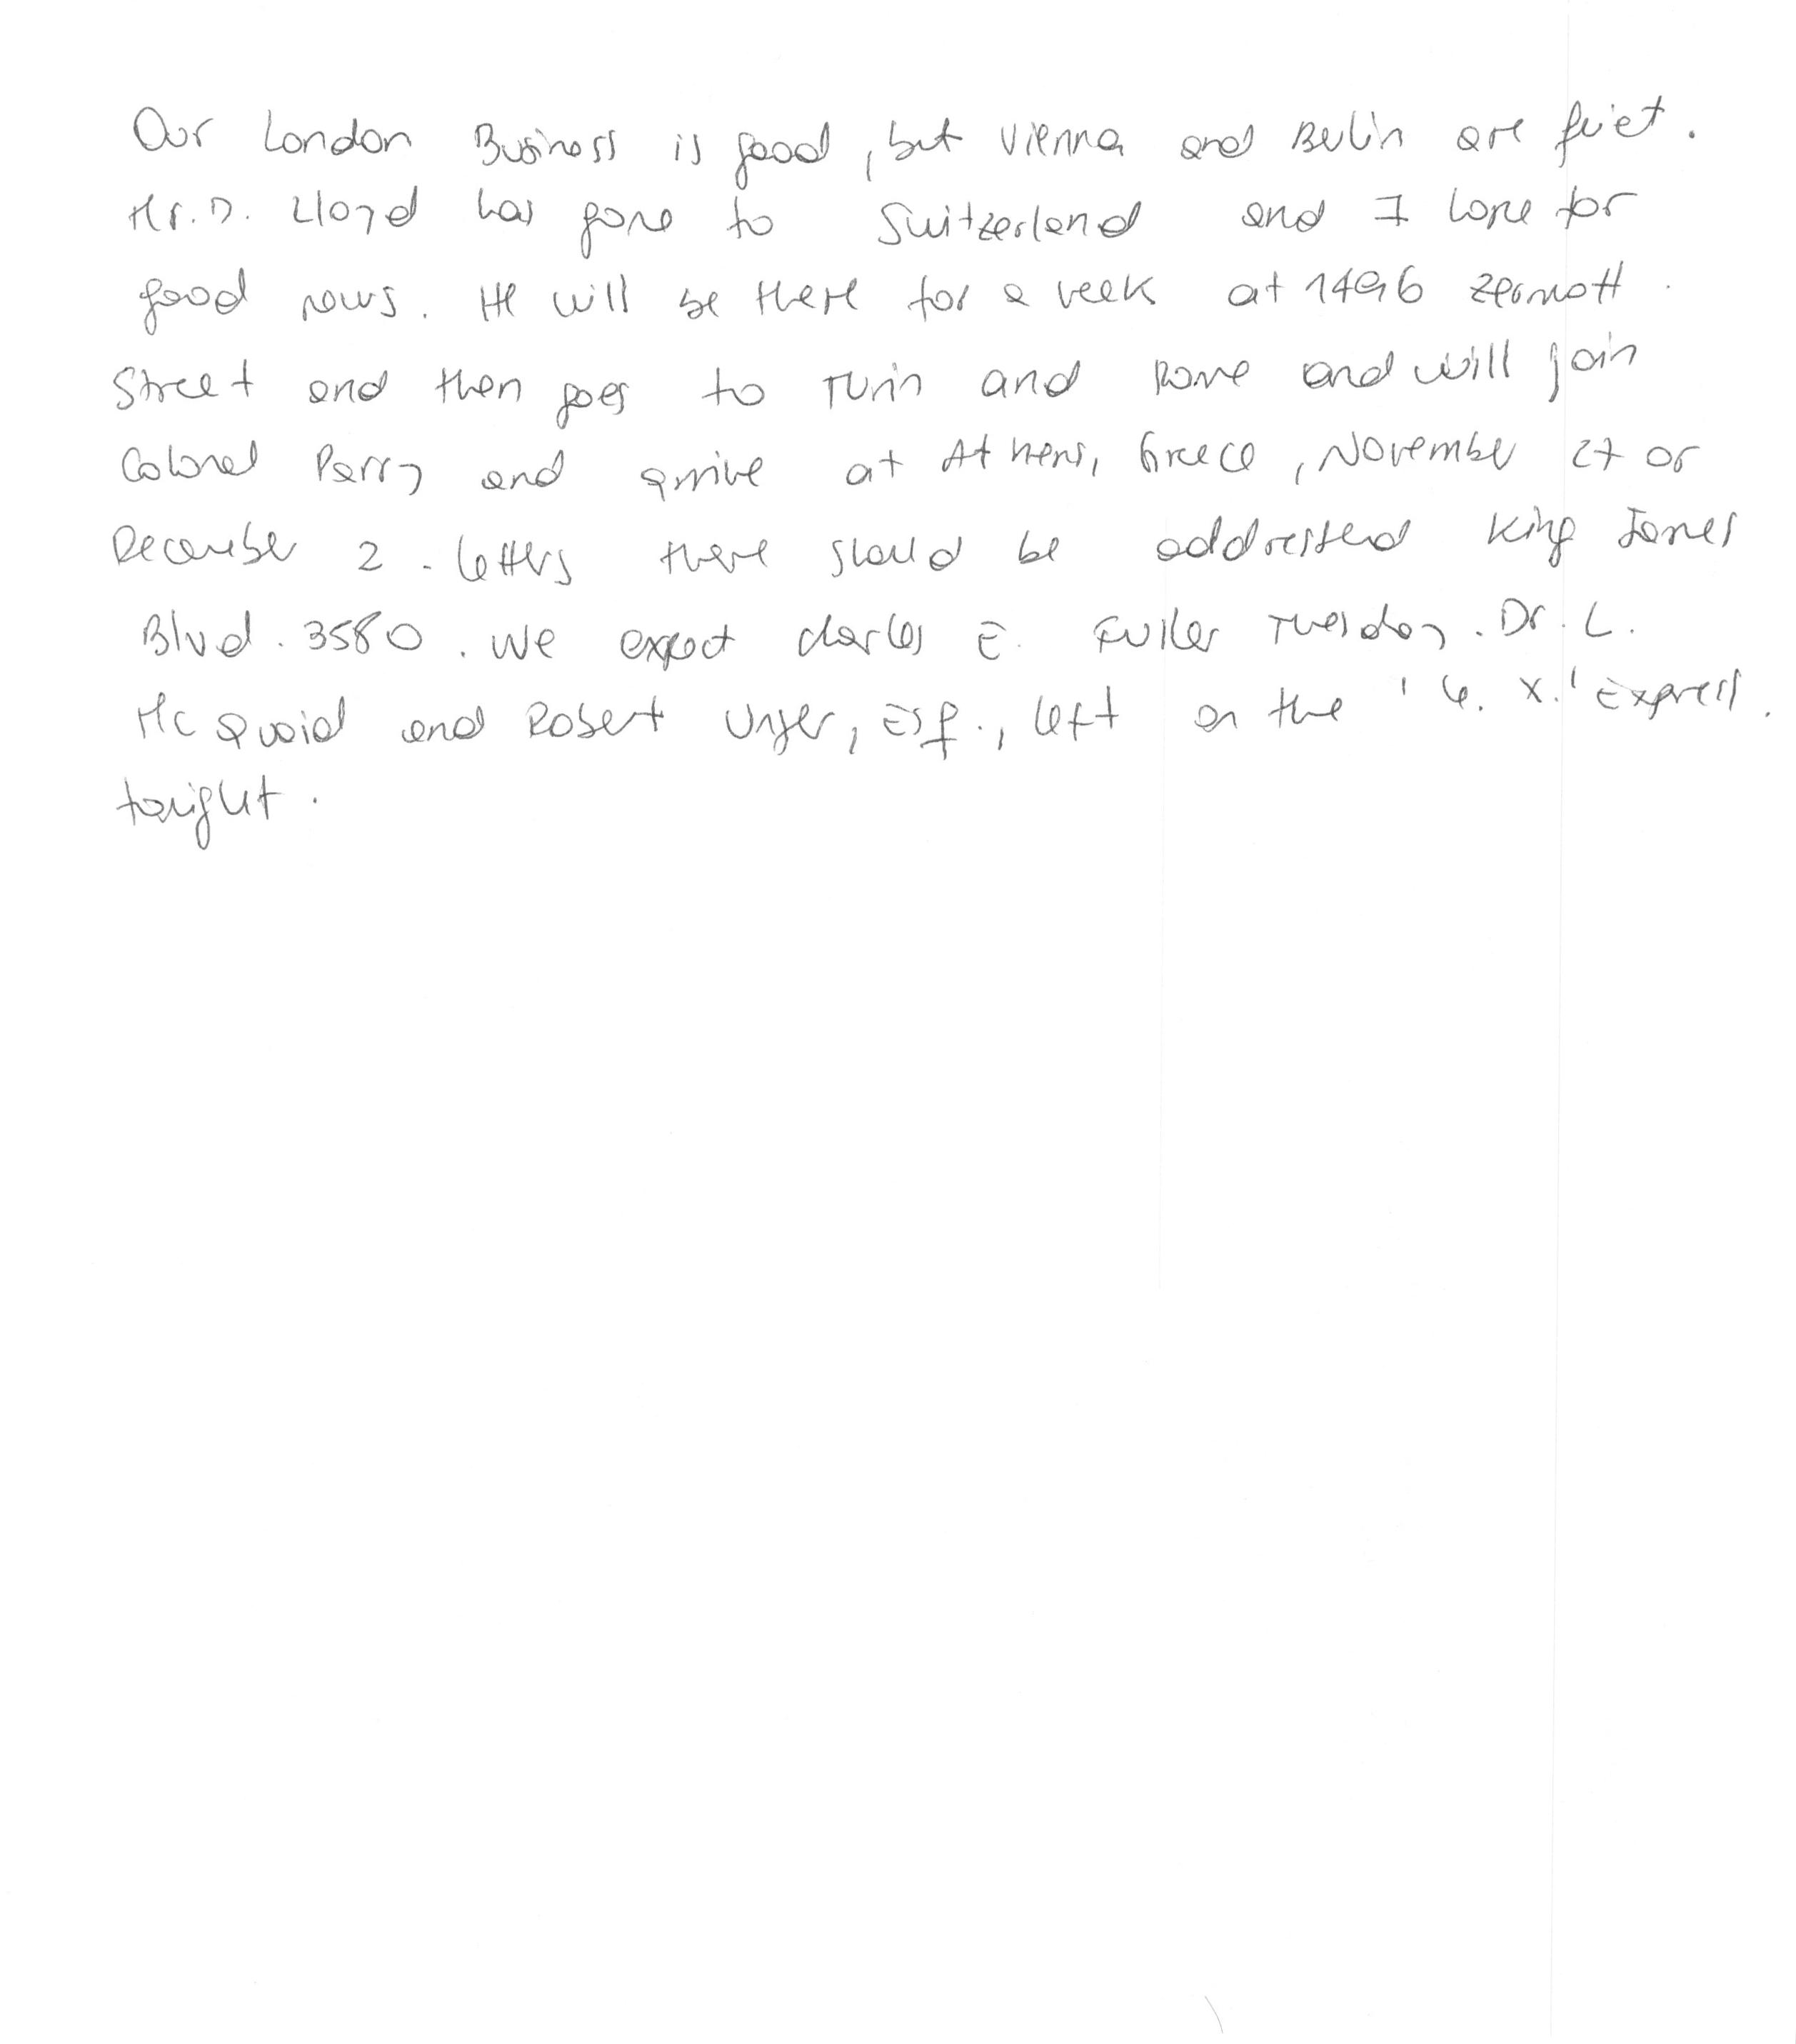 Our London Business is good, but Vienna and Berlin are quiet.
Mr. D. Lloyd has gone to Switzerland and I hope for
good news. He will be there for a week at 1496 Zermott
Street and then goes to Turin and Rome and will join
Colonel Parry and arrive at Athens, Greece, November 27 or
December 2. Letters there should be addressed King James
Blvd. 3580. We expect Charles E. Fuller Tuesday. Dr. L.
McQuaid and Robert Unger, Esq., left on the 'Y. X.' Express.
tonight.